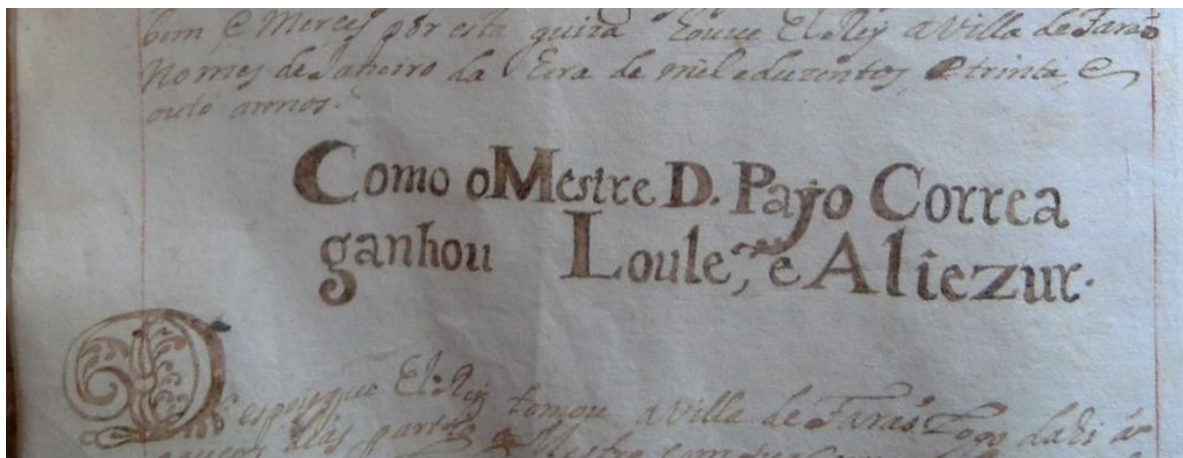 bem e Merces por esta guiza houve El Rey a Villa de Farão
No mes de Janeiro da Era de mil e duzentos, e trinta, e
outo annos.
Como o Mestre D. Payo Correa
ganhou Loule, e Aliezur.
Despois que El Rey tomou a Villa de Farão Logo dahi a
partes o Mestre com